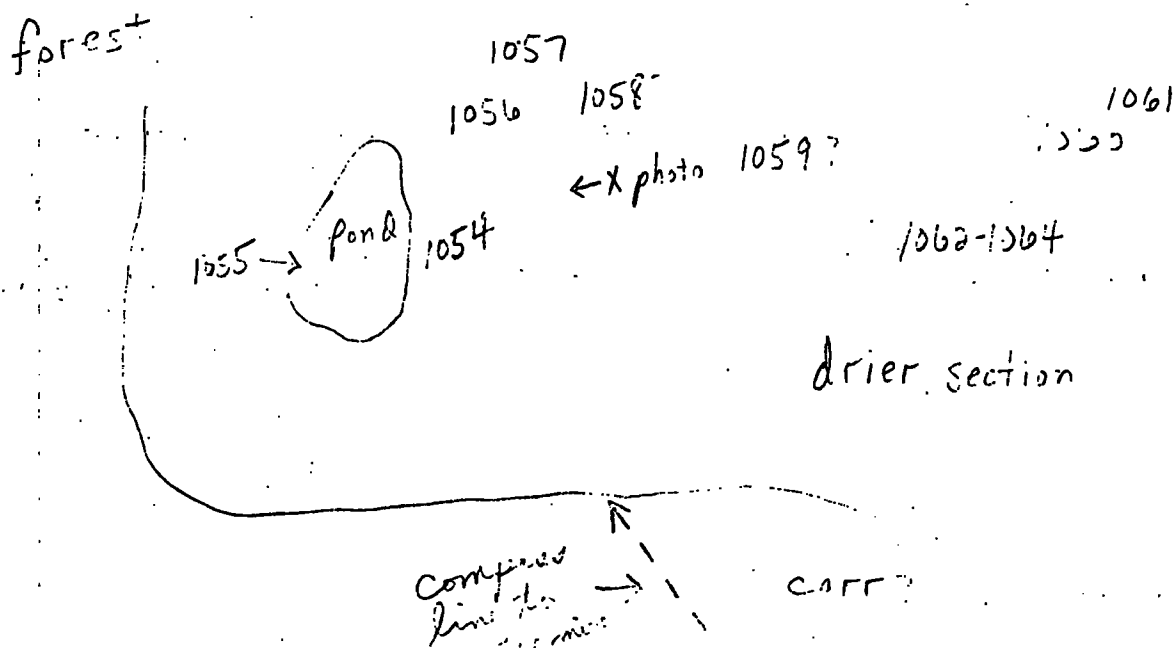 forest
1057
1056 1058
1061
← X photo 1059?
1055 → pond 1054
1062-1064
drier section
line to
→
carr?